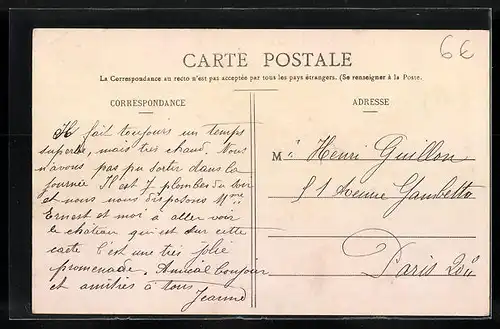 6€
CARTE POSTALE
La Correspondance au recto n'est pas acceptée par tous les pays étrangers. (Se renseigner à la Poste.
CORRESPONDANCE
ADRESSE
Il fait toujours un temps
superbe, mais très chaud. Nous
n'avons pas pu sortir dans la
journée Il est 7 plombes du soir
et nous nous disposons Mme
Ernest et moi a aller voir
le château qui est sur cette
carte C'est une très jolie
promenade. Amical bonjour
et amitiés à tous
Jeanne
M Henri Guillon
51 Avenue Gambetta
Paris 20e